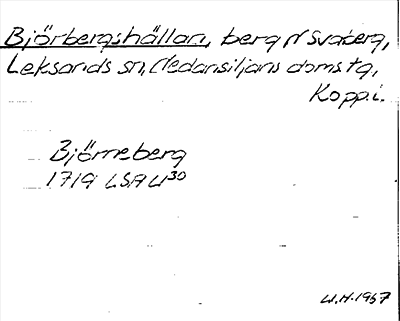 Björbergshällan, berg N Svaberg,
Leksands sn, Nedansiljans domstg,
Kopp.l.
Björneberg
1719 LSA U30
W.H. 1957